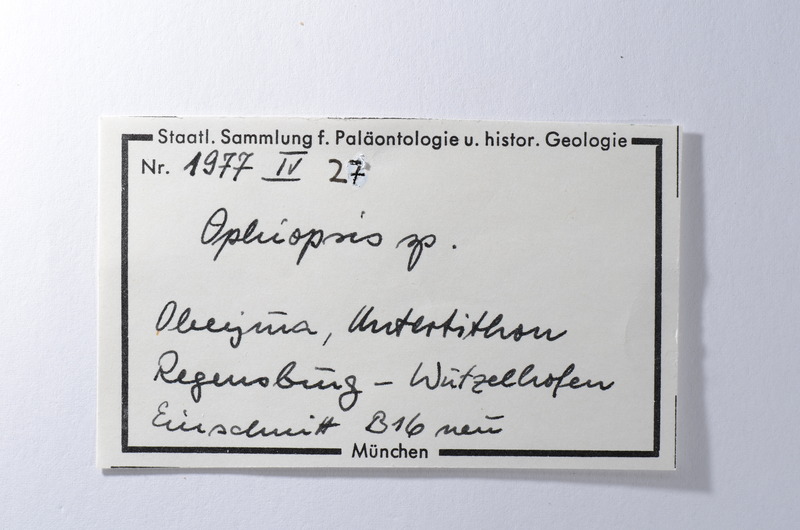 Staatl. Sammlung f. Paläontologie u. histor. Geologie
Nr. 1977 IV 27
Ophiopsis sp.
Oberjura, Untertithon
Regensburg - Wutzelhofen
Einschnitt B16 neu
München